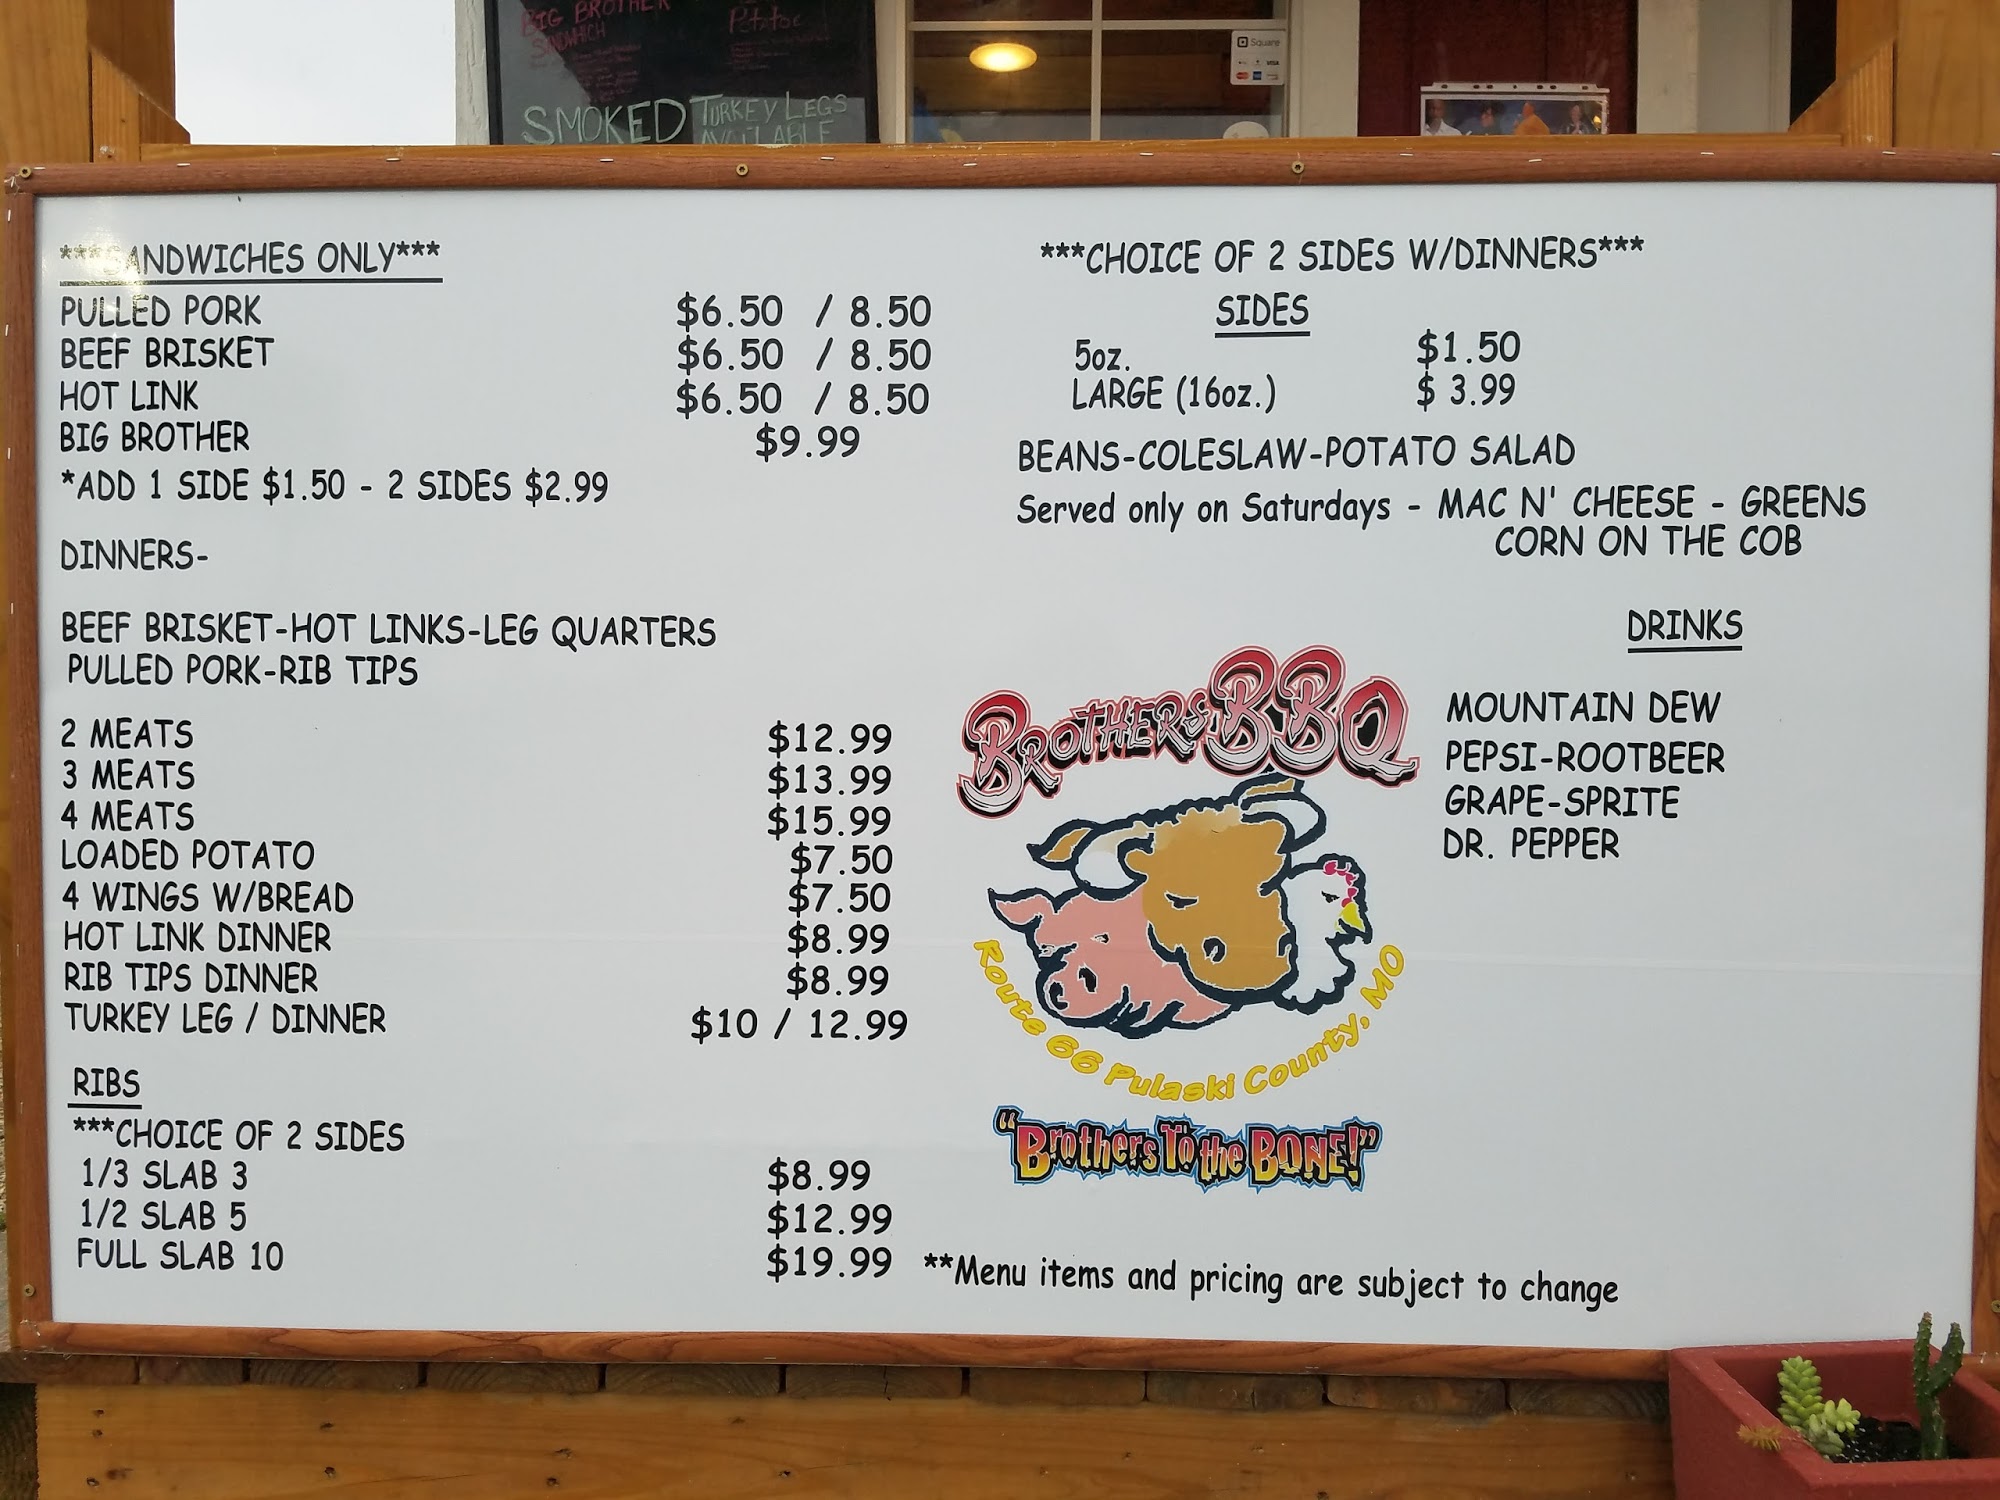 BIG BROTHER
SANDWICH
Potatoe
SMOKED TURKEY LEGS
AVAILABLE
Square
VISA
***SANDWICHES ONLY***
PULLED PORK $6.50 / 8.50
BEEF BRISKET $6.50 / 8.50
HOT LINK $6.50 / 8.50
BIG BROTHER $9.99
*ADD 1 SIDE $1.50 - 2 SIDES $2.99
DINNERS-
BEEF BRISKET-HOT LINKS-LEG QUARTERS
PULLED PORK-RIB TIPS
2 MEATS $12.99
3 MEATS $13.99
4 MEATS $15.99
LOADED POTATO $7.50
4 WINGS W/BREAD $7.50
HOT LINK DINNER $8.99
RIB TIPS DINNER $8.99
TURKEY LEG / DINNER $10 / 12.99
RIBS
***CHOICE OF 2 SIDES
1/3 SLAB 3 $8.99
1/2 SLAB 5 $12.99
FULL SLAB 10 $19.99
***CHOICE OF 2 SIDES W/DINNERS***
SIDES
5oz. $1.50
LARGE (16oz.) $ 3.99
BEANS-COLESLAW-POTATO SALAD
Served only on Saturdays - MAC N' CHEESE - GREENS
CORN ON THE COB
DRINKS
MOUNTAIN DEW
PEPSI-ROOTBEER
GRAPE-SPRITE
DR. PEPPER
BROTHERS BBQ
Route 66 Pulaski County, MO
"Brothers To the BONE!"
**Menu items and pricing are subject to change